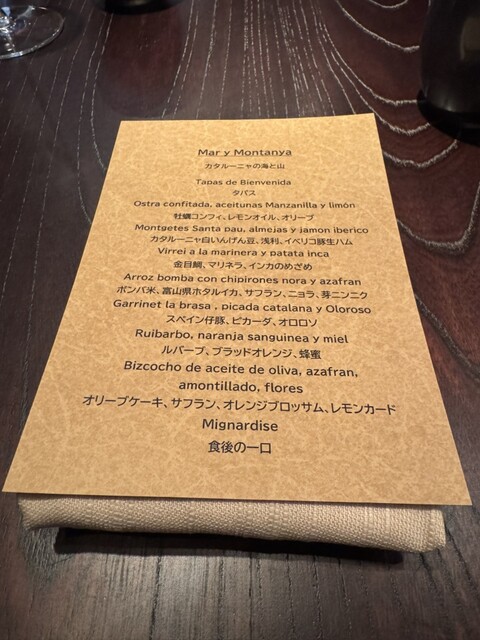 Mar y Montanya
カタルーニャの海と山
Tapas de Bienvenida
タパス
Ostra confitada, aceitunas Manzanilla y limón
牡蠣コンフィ、レモンオイル、オリーブ
Montgetes Santa pau, almejas y jamon iberico
カタルーニャ白いんげん豆、浅利、イベリコ豚生ハム
Virrei a la marinera y patata inca
金目鯛、マリネラ、インカのめざめ
Arroz bomba con chipirones nora y azafran
ボンバ米、富山県ホタルイカ、サフラン、ニョラ、芽ニンニク
Garrinet la brasa , picada catalana y Oloroso
スペイン仔豚、ピカーダ、オロロソ
Ruibarbo, naranja sanguinea y miel
ルバーブ、ブラッドオレンジ、蜂蜜
Bizcocho de aceite de oliva, azafran,
amontillado, flores
オリーブケーキ、サフラン、オレンジブロッサム、レモンカード
Mignardise
食後の一口